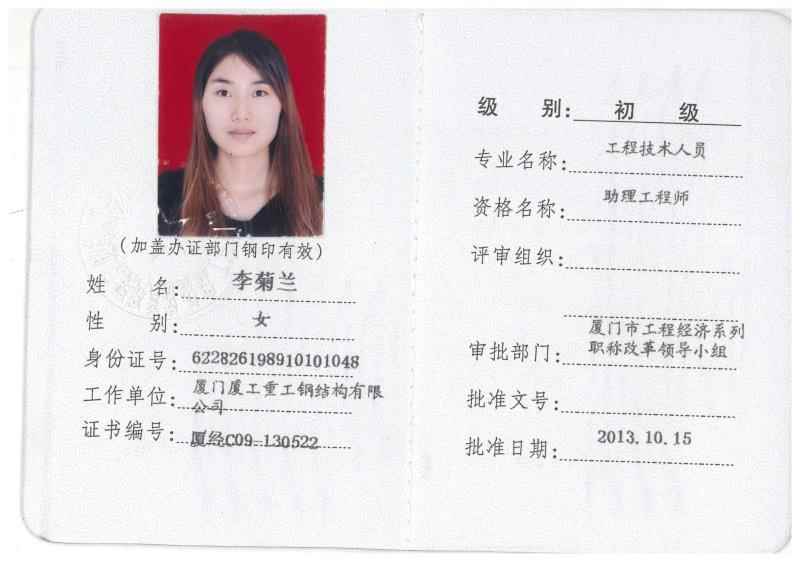 （加盖办证部门钢印有效）
姓 名：李菊兰
性 别：女
身份证号：622826198910101048
工作单位：厦门厦工重工钢结构有限
公司
证书编号：厦经C09-130522
级 别：初 级
专业名称：工程技术人员
资格名称：助理工程师
评审组织：
厦门市工程经济系列
审批部门：职称改革领导小组
批准文号：
批准日期：2013.10.15